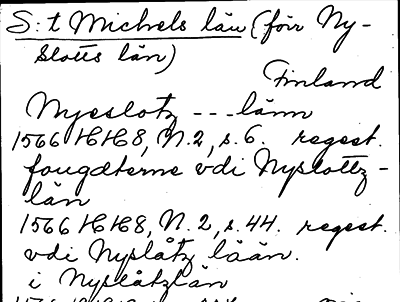 S:t Michels län (förr Ny-
slotts län)
Finland
Nyeslotz --- länn
1566 HH8, N. 2, s. 6. regest.
fougdterne vdi Nyslottz-
län
1566 HH8, N. 2, s. 44. regest.
vdi Nyslåtz lään.
i Nyslåtzlän